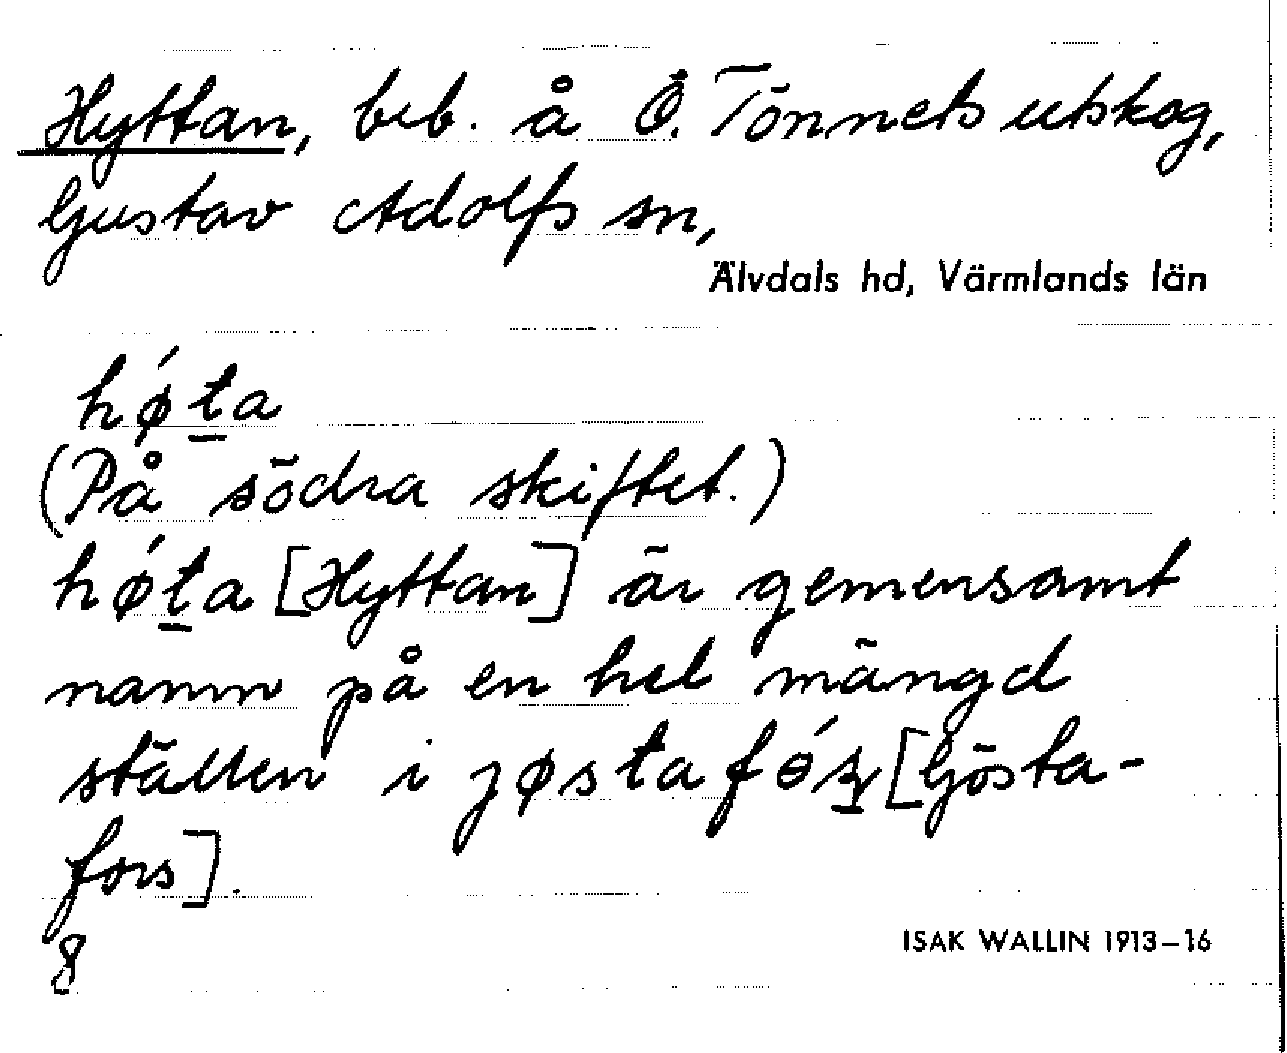 Hyttan, beb. å Ö. Tönnets utskog,
Gustav Adolfs sn,
Älvdals hd, Värmlands län
hǿt̲a
(På södra skiftet.)
hǿt̲a [Hyttan] är gemensamt
namn på en hel mängd
ställen i jøsta [Gösta-
fors].
8
ISAK WALLIN 1913–16